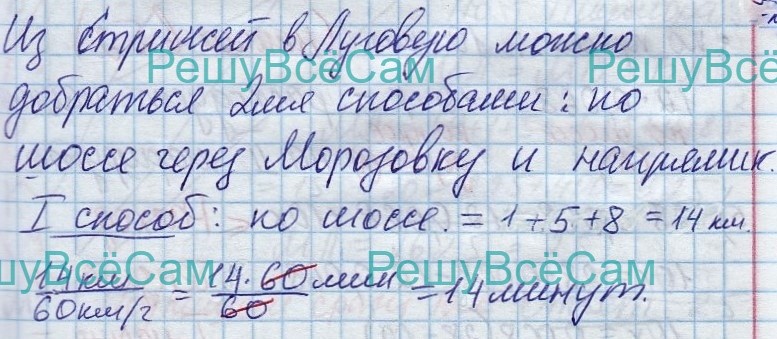 Из Стрижей в Луговую можно
РешуВсёСам РешуВсё
добраться 2мя способами: по
шоссе через Морозовку и напрямик.
I способ: по шоссе. = 1 + 5 + 8 = 14 км.
шуВсёСам РешуВсёСам
14 км / 60 км/г = 14 · 60 мин / 60 = 14 минут.